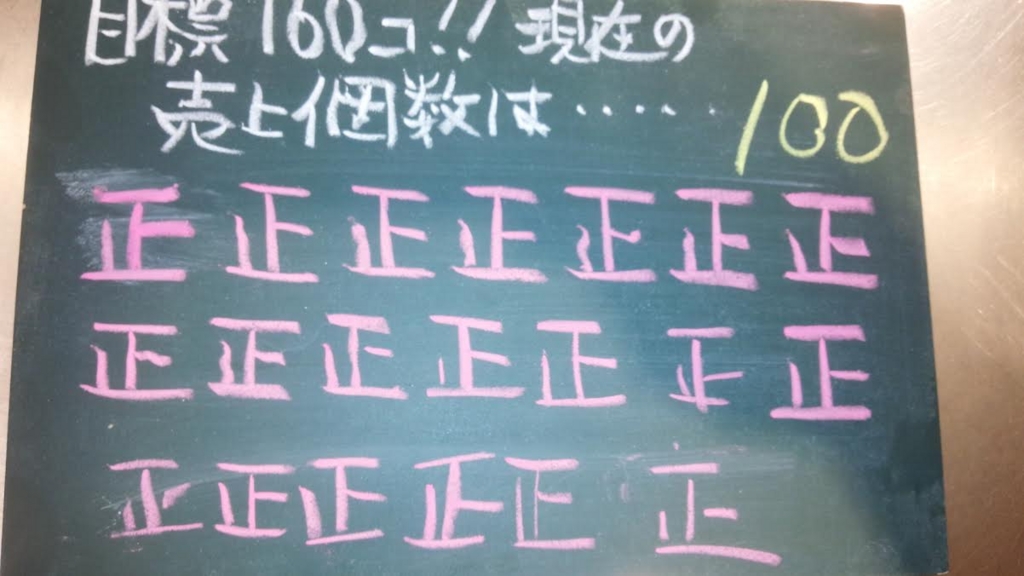 目標160コ!! 現在の
売上個数は・・・・・100
正正正正正正正
正正正正正正正
正正正正正正